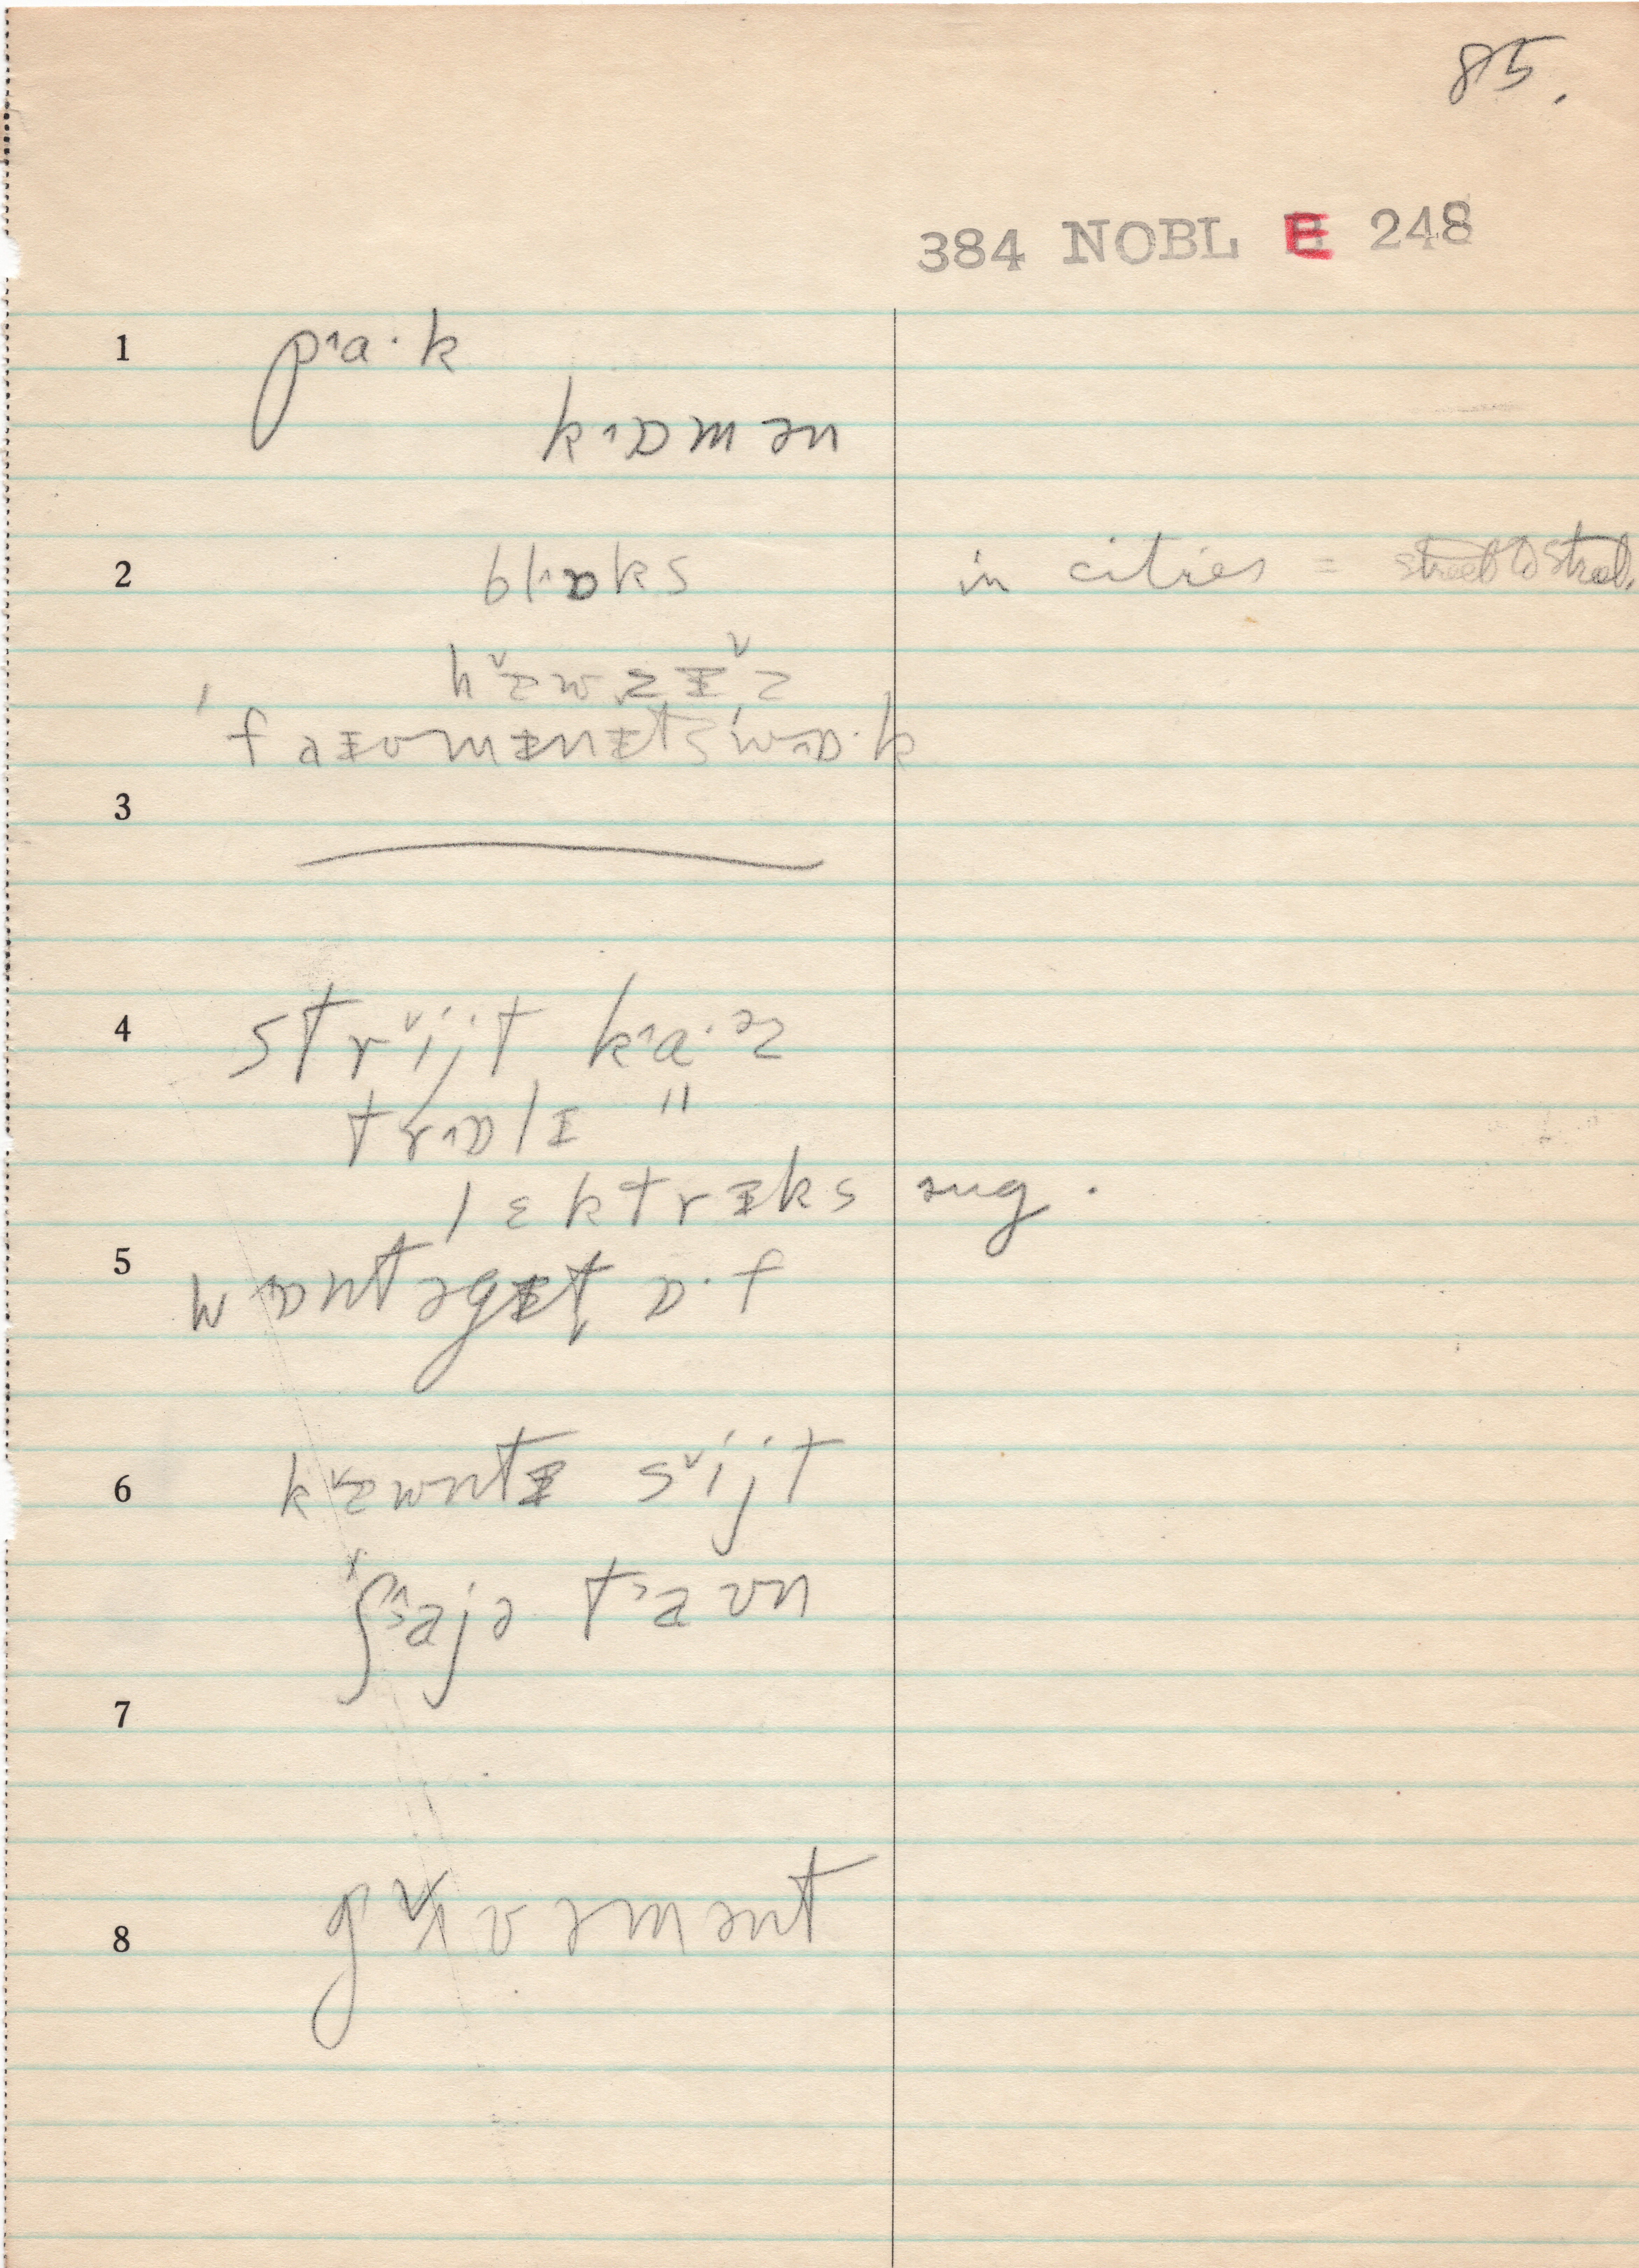 85.
384 NOBL E 248
1 p˄a·k
k˄ɒmən
2 bl˄ɒks in cities = street to street.
h˅ɛwzɪ˅z
ˈfaɪvmɪnɪts'w˄ɒ·k
3
4 str˅ijt k˄a·əz
tr˄ɒlɪ "
lɛktrɪks aug.
5 w˄ɒntəgɪt ɒ·f
6 k˅ɛwntɪ s˅ijt
ʃ˄ajə t˃aʊn
7
8 g˅ʌvəmənt